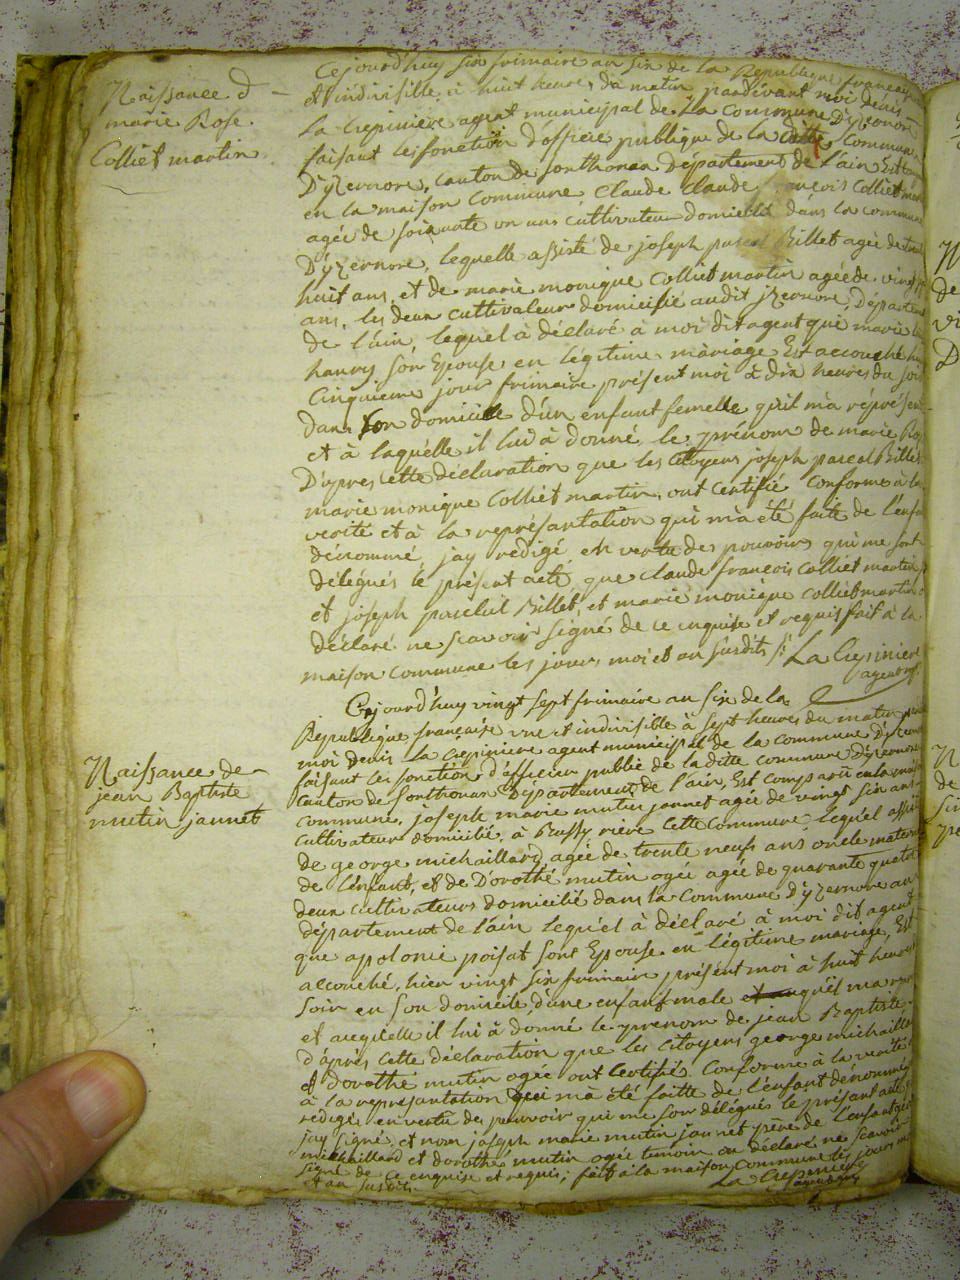 Naissance d
marie Rose
Colliet martin
Cejourd'huy six frimaire an six de la Republique francaise
et indivisible à huit heures du matin pardevant moi denis
La Crepiniere agent municipal de La Commune D'yzernore
faisant les fonction d'officie publique de la Commune
D'yzernore, canton de sonthonax Departement de l'ain Est
en la maison Commune Claude Claude Colliet
agée de soixante un ans cultivateur domicilié dans la commune
D'yzernore, lequelle assisté de joseph pascal Billet agée de
huit ans, et de marie monique Colliet martin agée de vingt
ans, les deux cultivateur domicilié audit jzernore, Departement
de l'ain, lequel à déclaré à moi dit agent que marie
haury son Epouse en légitime màriage Est accouché
Cinquieme jour frimaire présent moi à dix heures du soir
dans son domicille d'un enfant femelle qu'il m'a réprésen
et à laquélle il lui à donné le prénom de marie Ros
D'apres cette déclaration que les Citoyens joseph pascal Billet
marie monique Colliet martin, ont certifié Conforme à la
verité et à la représantation qui m'a été faite de l'enfa
dénommé, jay rédigé en vertu des pouvoirs qui me sont
délégués le présent acte, que Claude francois Colliet martin
et joseph Billet, et marie monique Collietmartin
déclaré ne scavoir signé de ce enquise et requis fait à la
maison Commune les jours, moi et an susdits
La Crepiniere
agent
Cejourd'huy vingt sept frimaire an six de la
Republique francaise une et indivisible à sept heures du matin
moi denis la Crepiniere agent municipal de la commune D'yzernore
faisant les fonction d'officier publié de la ditte commune D'yzernore
Canton de Sonthonax Departement de l'ain, Est comparu en la maison
commune, joseph marie mutin jannet agée de vingt six ans
Cultivateur domicilié, à Bussy rière Cette Commune lequel assisté
Naissance de
jean Baptiste
mutin jannet
de george michaillard agée de trente neuf ans oncle maternel
de l'enfant, et de Dorothé mutin ogée agée de quarante quatre
deux cultivateurs domicilié dans la Commune D'yzernore au
département de l'ain lequél à déclaré à moi dit agent
que apolonie poisat sont Epouse en légitime mariage, Est
accouché, hier vingt six frimaire présent moi à huit heures
soir en son domicile, d'une enfant male qu'él ma repr
et acquelle il lui à donné le prenom de jean Baptiste
d'aprés cette déclaration que les Citoyens george michaillard
et Dorothé mutin ogée ont Certifié Conforme à la verité
à la représantation qui ma été faitte de l'enfant dénommé
redigé en vertu des pouvoir qui me son délégués le présant acte
jay signé et nom joseph marie mutin jannet pere de l'enfant
michaillard et dorothé mutin ogée temoin on déclaré ne scavoir
signé de Ce enquise et requis, fait à la maison Commune les jours moi
et an susdits
La Crepiniere
agent